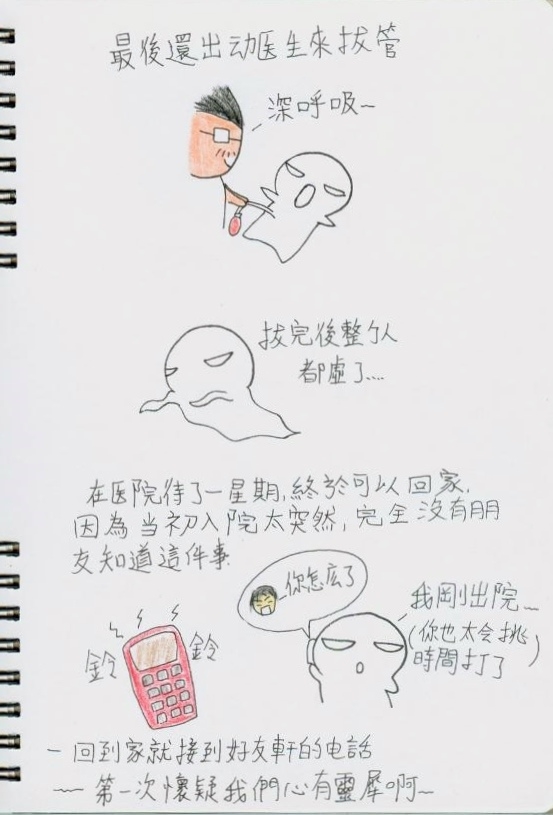 最後還出动医生來拔管
深呼吸~
拔完後整个人
都虛了....
在医院待了一星期,終於可以回家.
因為当初入院太突然,完全沒有朋
友知道這件事.
你怎庅了
我剛出院~
(你也太会挑
時間打了)
鈴
鈴
一回到家就接到好友軒的电話
~~ 第一次懷疑我們心有靈犀啊~